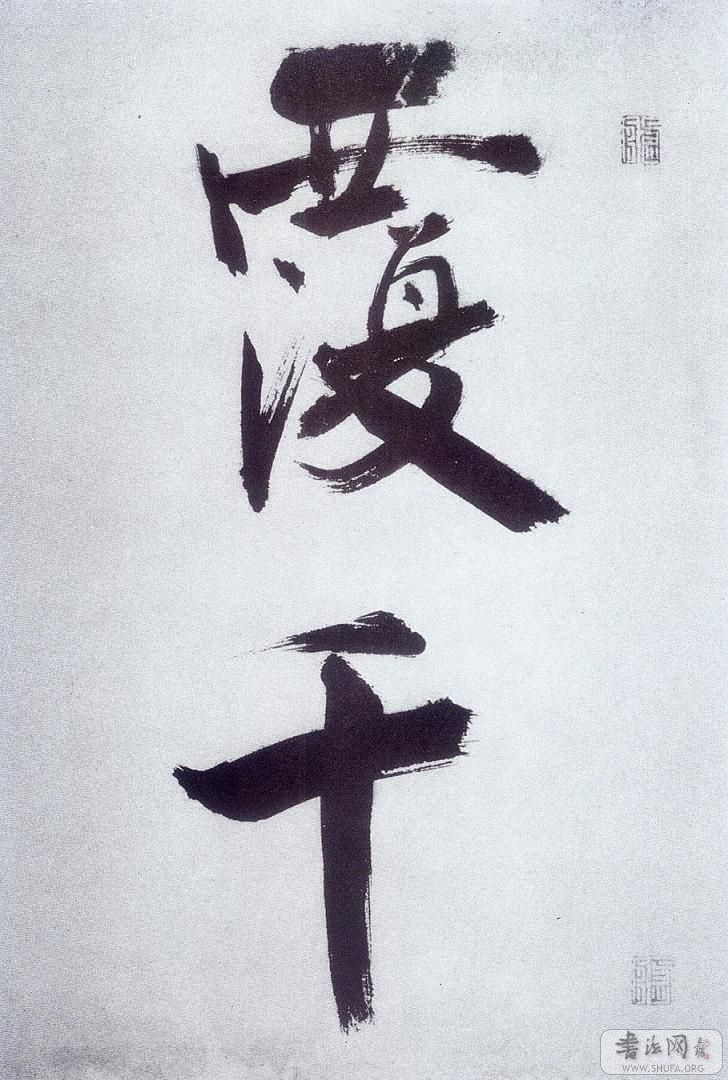 覆
千
書法网
WWW.SHUFA.ORG